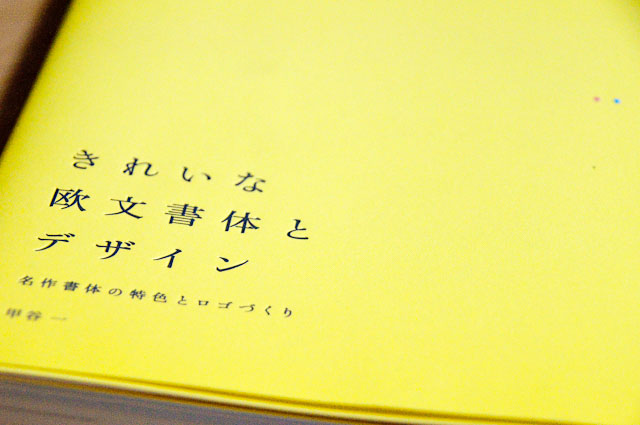 きれいな
欧文書体と
デザイン
名作書体の特色とロゴづくり
甲谷 一